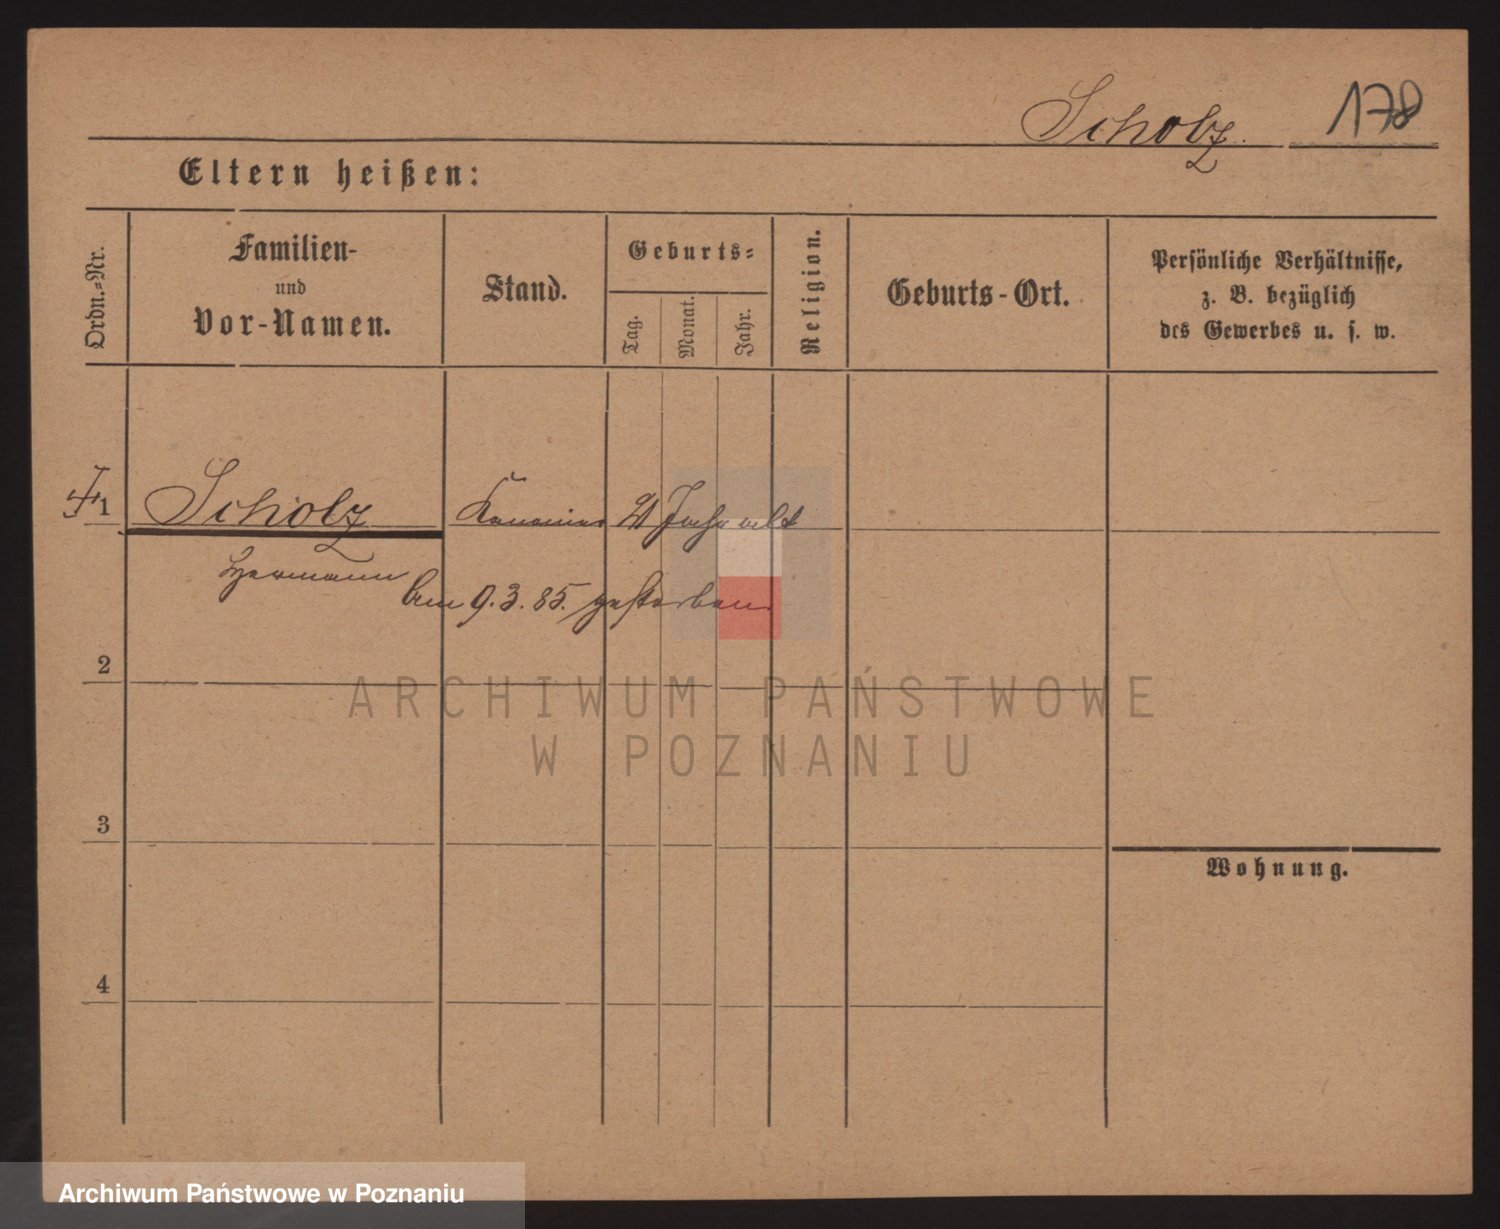 Scholz. 178
Eltern heißen:
Ordn.-Nr.
Familien-
und
Vor-Namen.
Stand.
Geburts-
Tag.
Monat.
Jahr.
Religion.
Geburts-Ort.
Persönliche Verhältnisse,
z. B. bezüglich
des Gewerbes u. s. w.
1 Scholz Kanonier 21 Jahr alt
Hermann
Am 9.3.85. gestorben.
2
ARCHIWUM PAŃSTWOWE
W POZNANIU
3
Wohnung.
4
Archiwum Państwowe w Poznaniu